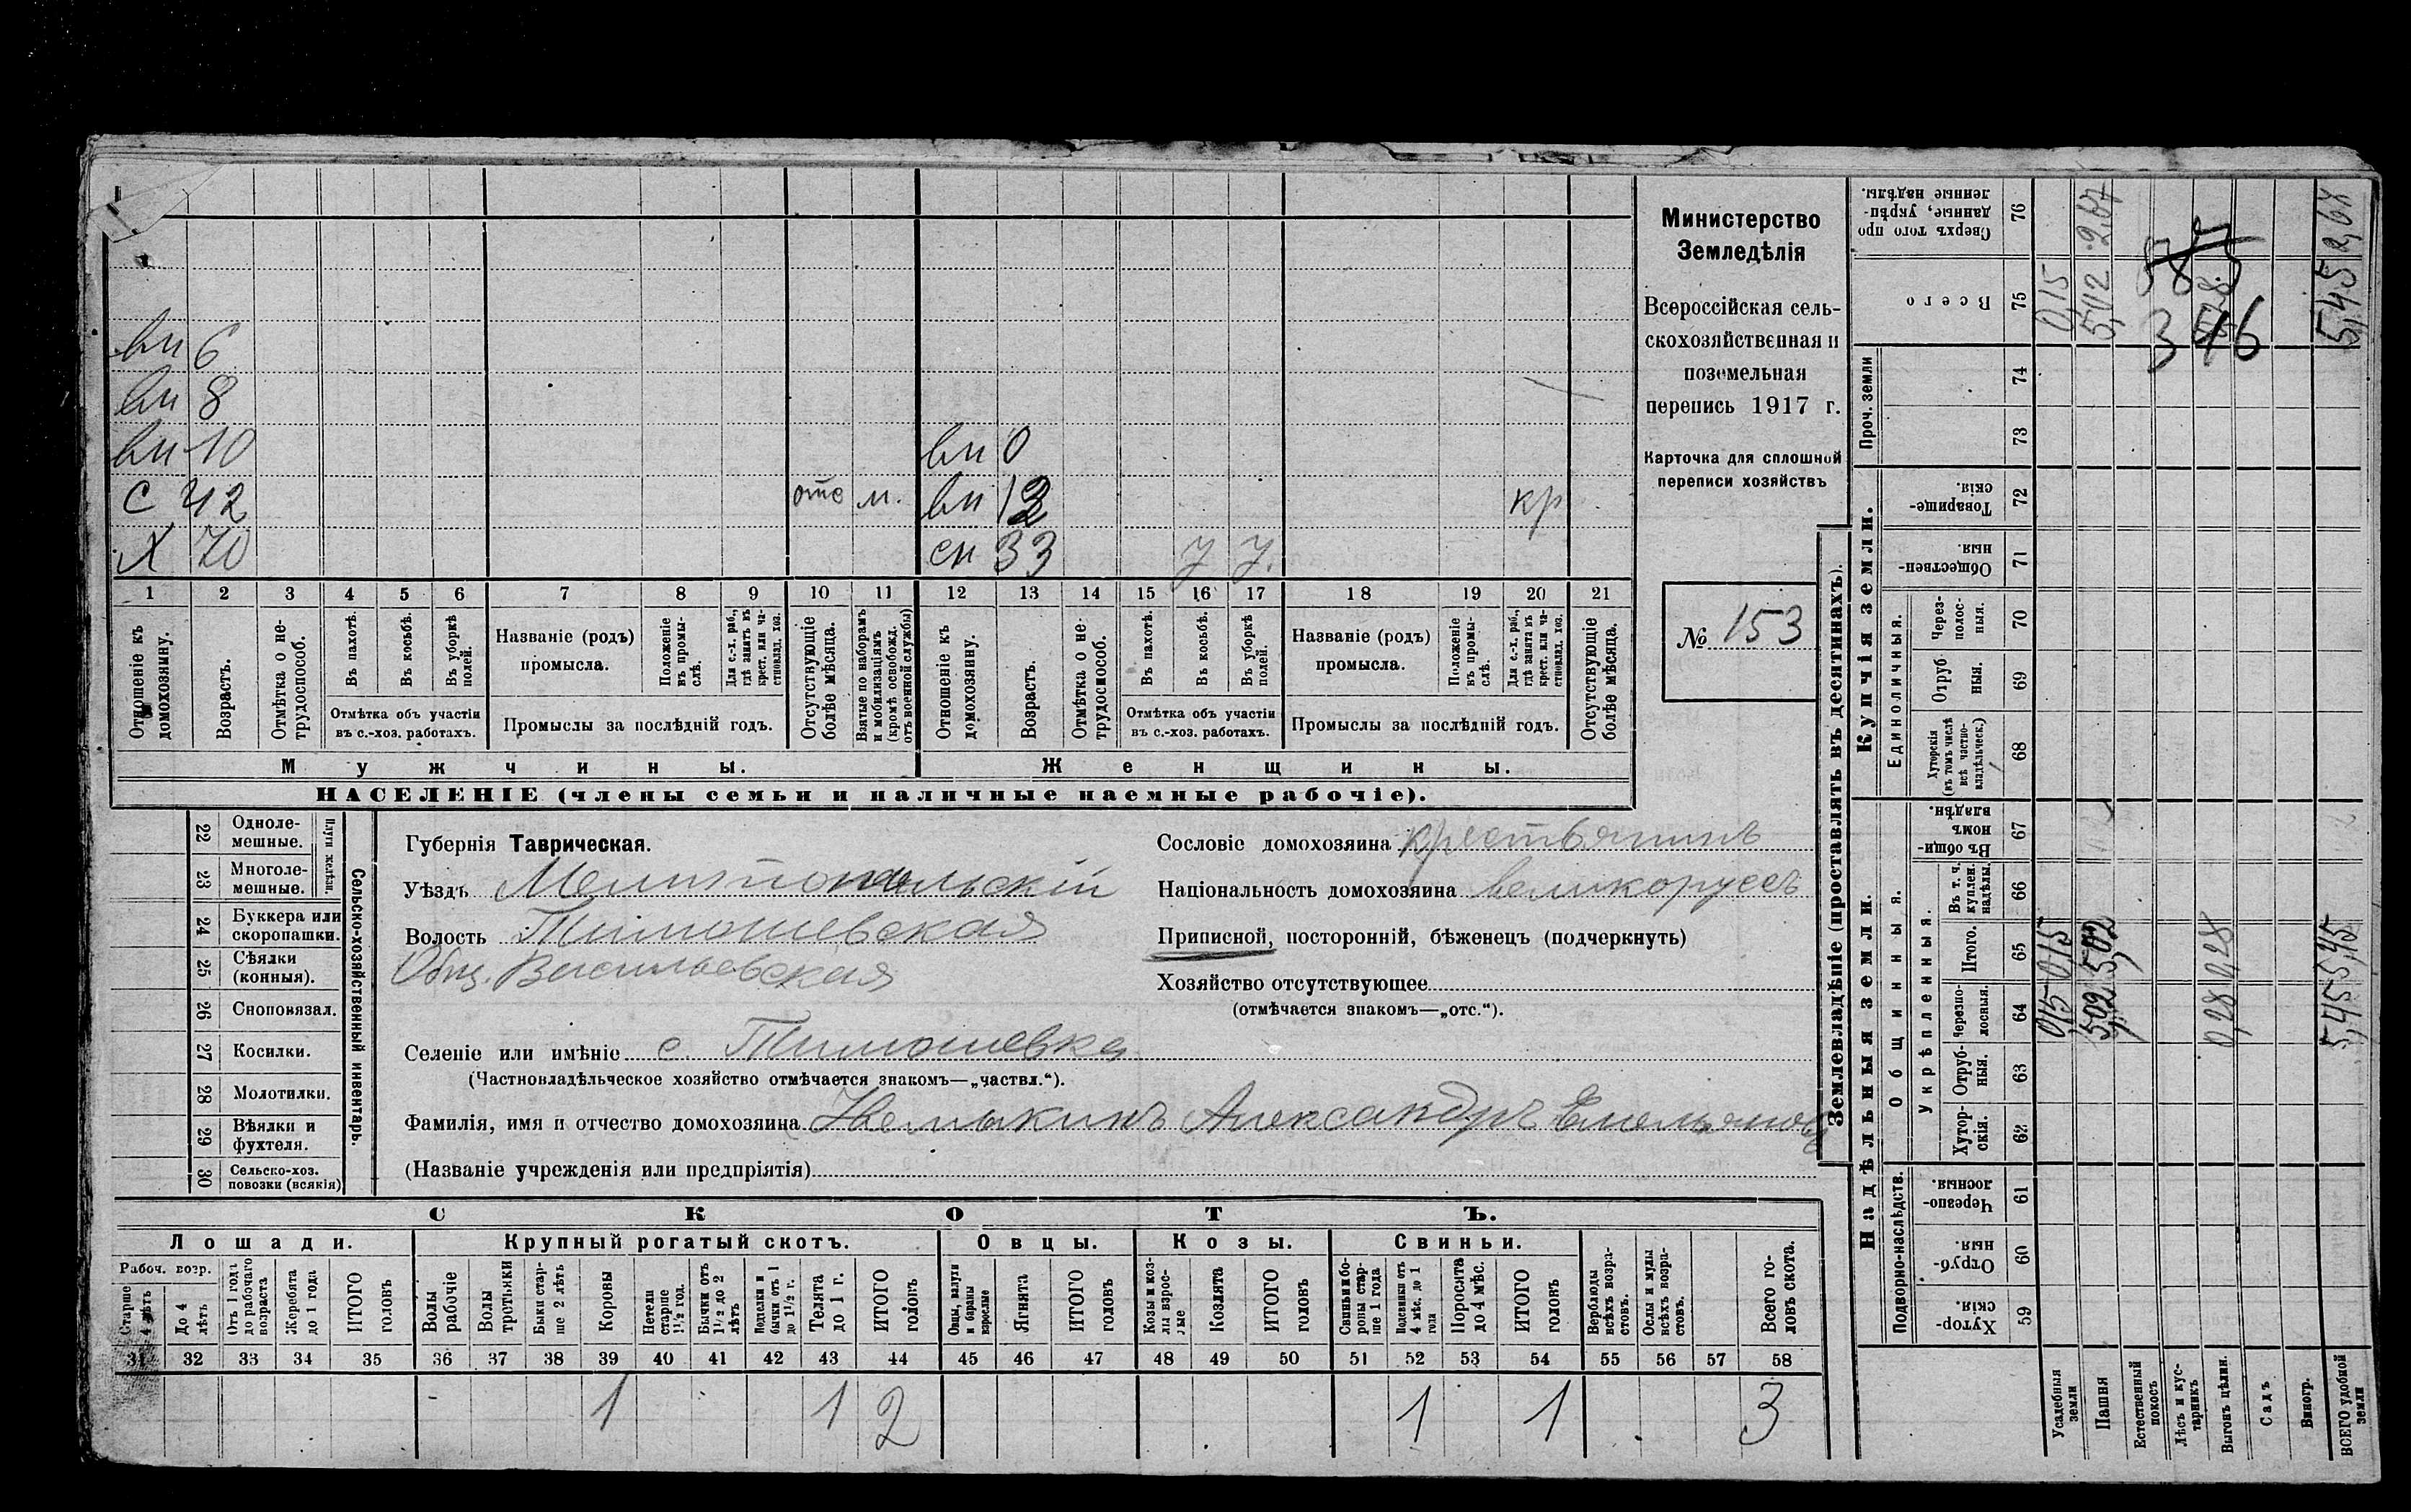 вн 6
вн 8
вн 10 вн 0
с 42 отс м. вн 12 кр
х 70 сн 33 у у.
1 2 3 4 5 6 7 8 9 10 11 12 13 14 15 16 17 18 19 20 21
Отношеніе къ домохозяину.
Возрастъ.
Отмѣтка о не-
трудоспособ.
Въ пахотѣ.
Въ косьбѣ.
Въ уборкѣ полей.
Отмѣтка объ участіи
въ с.-хоз. работахъ.
Названіе (родъ)
промысла.
Положеніе въ промы-
слѣ.
Для с.-х. раб.,
гдѣ занятъ въ
крест. или ча-
стновлад. хоз.
Промыслы за послѣдній годъ.
Отсутствующіе болѣе мѣсяца.
Взятые по наборамъ
и мобилизаціямъ
(кромѣ освобожд.
отъ военной службы)
Отношеніе къ домохозяину.
Возрастъ.
Отмѣтка о не-
трудоспособ.
Въ пахотѣ.
Въ косьбѣ.
Въ уборкѣ полей.
Отмѣтка объ участіи
въ с.-хоз. работахъ.
Названіе (родъ)
промысла.
Положеніе въ промы-
слѣ.
Для с.-х. раб.,
гдѣ занята въ
крест. или ча-
стновлад. хоз.
Промыслы за послѣдній годъ.
Отсутствующіе болѣе мѣсяца.
Мужчины. Женщины.
НАСЕЛЕНІЕ (члены семьи и наличные наемные рабочіе).
Министерство
Земледѣлія
Всероссійская сель-
скохозяйственная и
поземельная
перепись 1917 г.
Карточка для сплошной
переписи хозяйствъ
№ 153
Сельско-хозяйственный инвентарь.
Плуги желѣзн.
22 Одноле-
мешные.
23 Многоле-
мешные.
24 Буккера или
скоропашки.
25 Сѣялки
(конныя).
26 Сноповязал.
27 Косилки.
28 Молотилки.
29 Вѣялки и
фухтеля.
30 Сельско-хоз.
повозки (всякія)
Губернія Таврическая.
Уѣздъ Мелитопольскій
Волость Тимошевская
Общ. Васильевская
Селеніе или имѣніе с. Тимошевка
(Частновладѣльческое хозяйство отмѣчается знакомъ—„частвл.“).
Фамилія, имя и отчество домохозяина Александръ Емельянов
(Названіе учрежденія или предпріятія)
Сословіе домохозяина крестьянинъ
Національность домохозяина великоруссъ
Приписной, посторонній, бѣженецъ (подчеркнуть)
Хозяйство отсутствующее
(отмѣчается знакомъ—„отс.“).
СКОТЪ.
Лошади. Крупный рогатый скотъ. Овцы. Козы. Свиньи.
Рабоч. возр.
Старше 4 лѣтъ
До 4 лѣтъ
Отъ 1 года
до рабочаго
возраста
Жеребята до 1 года
ИТОГО головъ
Волы рабочіе
Волы третьяки
Быки стар-
ше 2 лѣтъ
Коровы
Нетели старше 1½ год.
Бычки отъ 1½ до 2 лѣтъ
Подтелки и бычки отъ 1 до 1½ г.
Телята до 1 г.
ИТОГО головъ
Овцы, валухи и бараны взрослые
Ягнята
ИТОГО головъ
Козы и коз-
лы взрос-
лые
Козлята
ИТОГО головъ
Свиньи и бо-
ровы стар-
ше 1 года
Подсвинки отъ 4 мѣс. до 1 года
Поросята до 4 мѣс.
ИТОГО головъ
Верблюды всѣхъ возра-
стовъ.
Ослы и мулы всѣхъ возра-
стовъ.
Всего го-
ловъ скота.
31 32 33 34 35 36 37 38 39 40 41 42 43 44 45 46 47 48 49 50 51 52 53 54 55 56 57 58
1 1 2 1 1 3
Землевладѣніе (проставлять въ десятинахъ).
Купчія земли.
Надѣльныя земли.
Сверхъ того про
данные, укрѣп-
ленные надѣлы.
76
2,67
2,67
Всего
75
0,15
5,02
0,28
5,45
583
346
Проч. земли
74
73
Товарище-
скія.
72
Обществен-
ныя.
71
Единоличныя.
Через-
полос-
ныя.
70
Отруб
ныя.
69
Хуторскія
(въ томъ числѣ
всѣ частно-
владѣльческ.)
68
Общинныя.
Въ общи-
номъ
владѣн.
67
Укрѣпленныя.
Въ т. ч.
куплен.
надѣлы.
66
Итого.
65
0,15
5,02
0,28
5,45
Черезпо-
лосныя.
64
0,15
5,02
0,28
5,45
Отруб-
ныя.
63
Хутор-
скія.
62
Подворно-наслѣдств.
Черезпо-
лосныя.
61
Отруб-
ныя.
60
Хутор-
скія.
59
Усадебныя
земли
Пашня
Естественный
покосъ
Лѣсъ и кус-
тарникъ
Выгонъ цѣлин.
Садъ
Виногр.
ВСЕГО удобной
земли